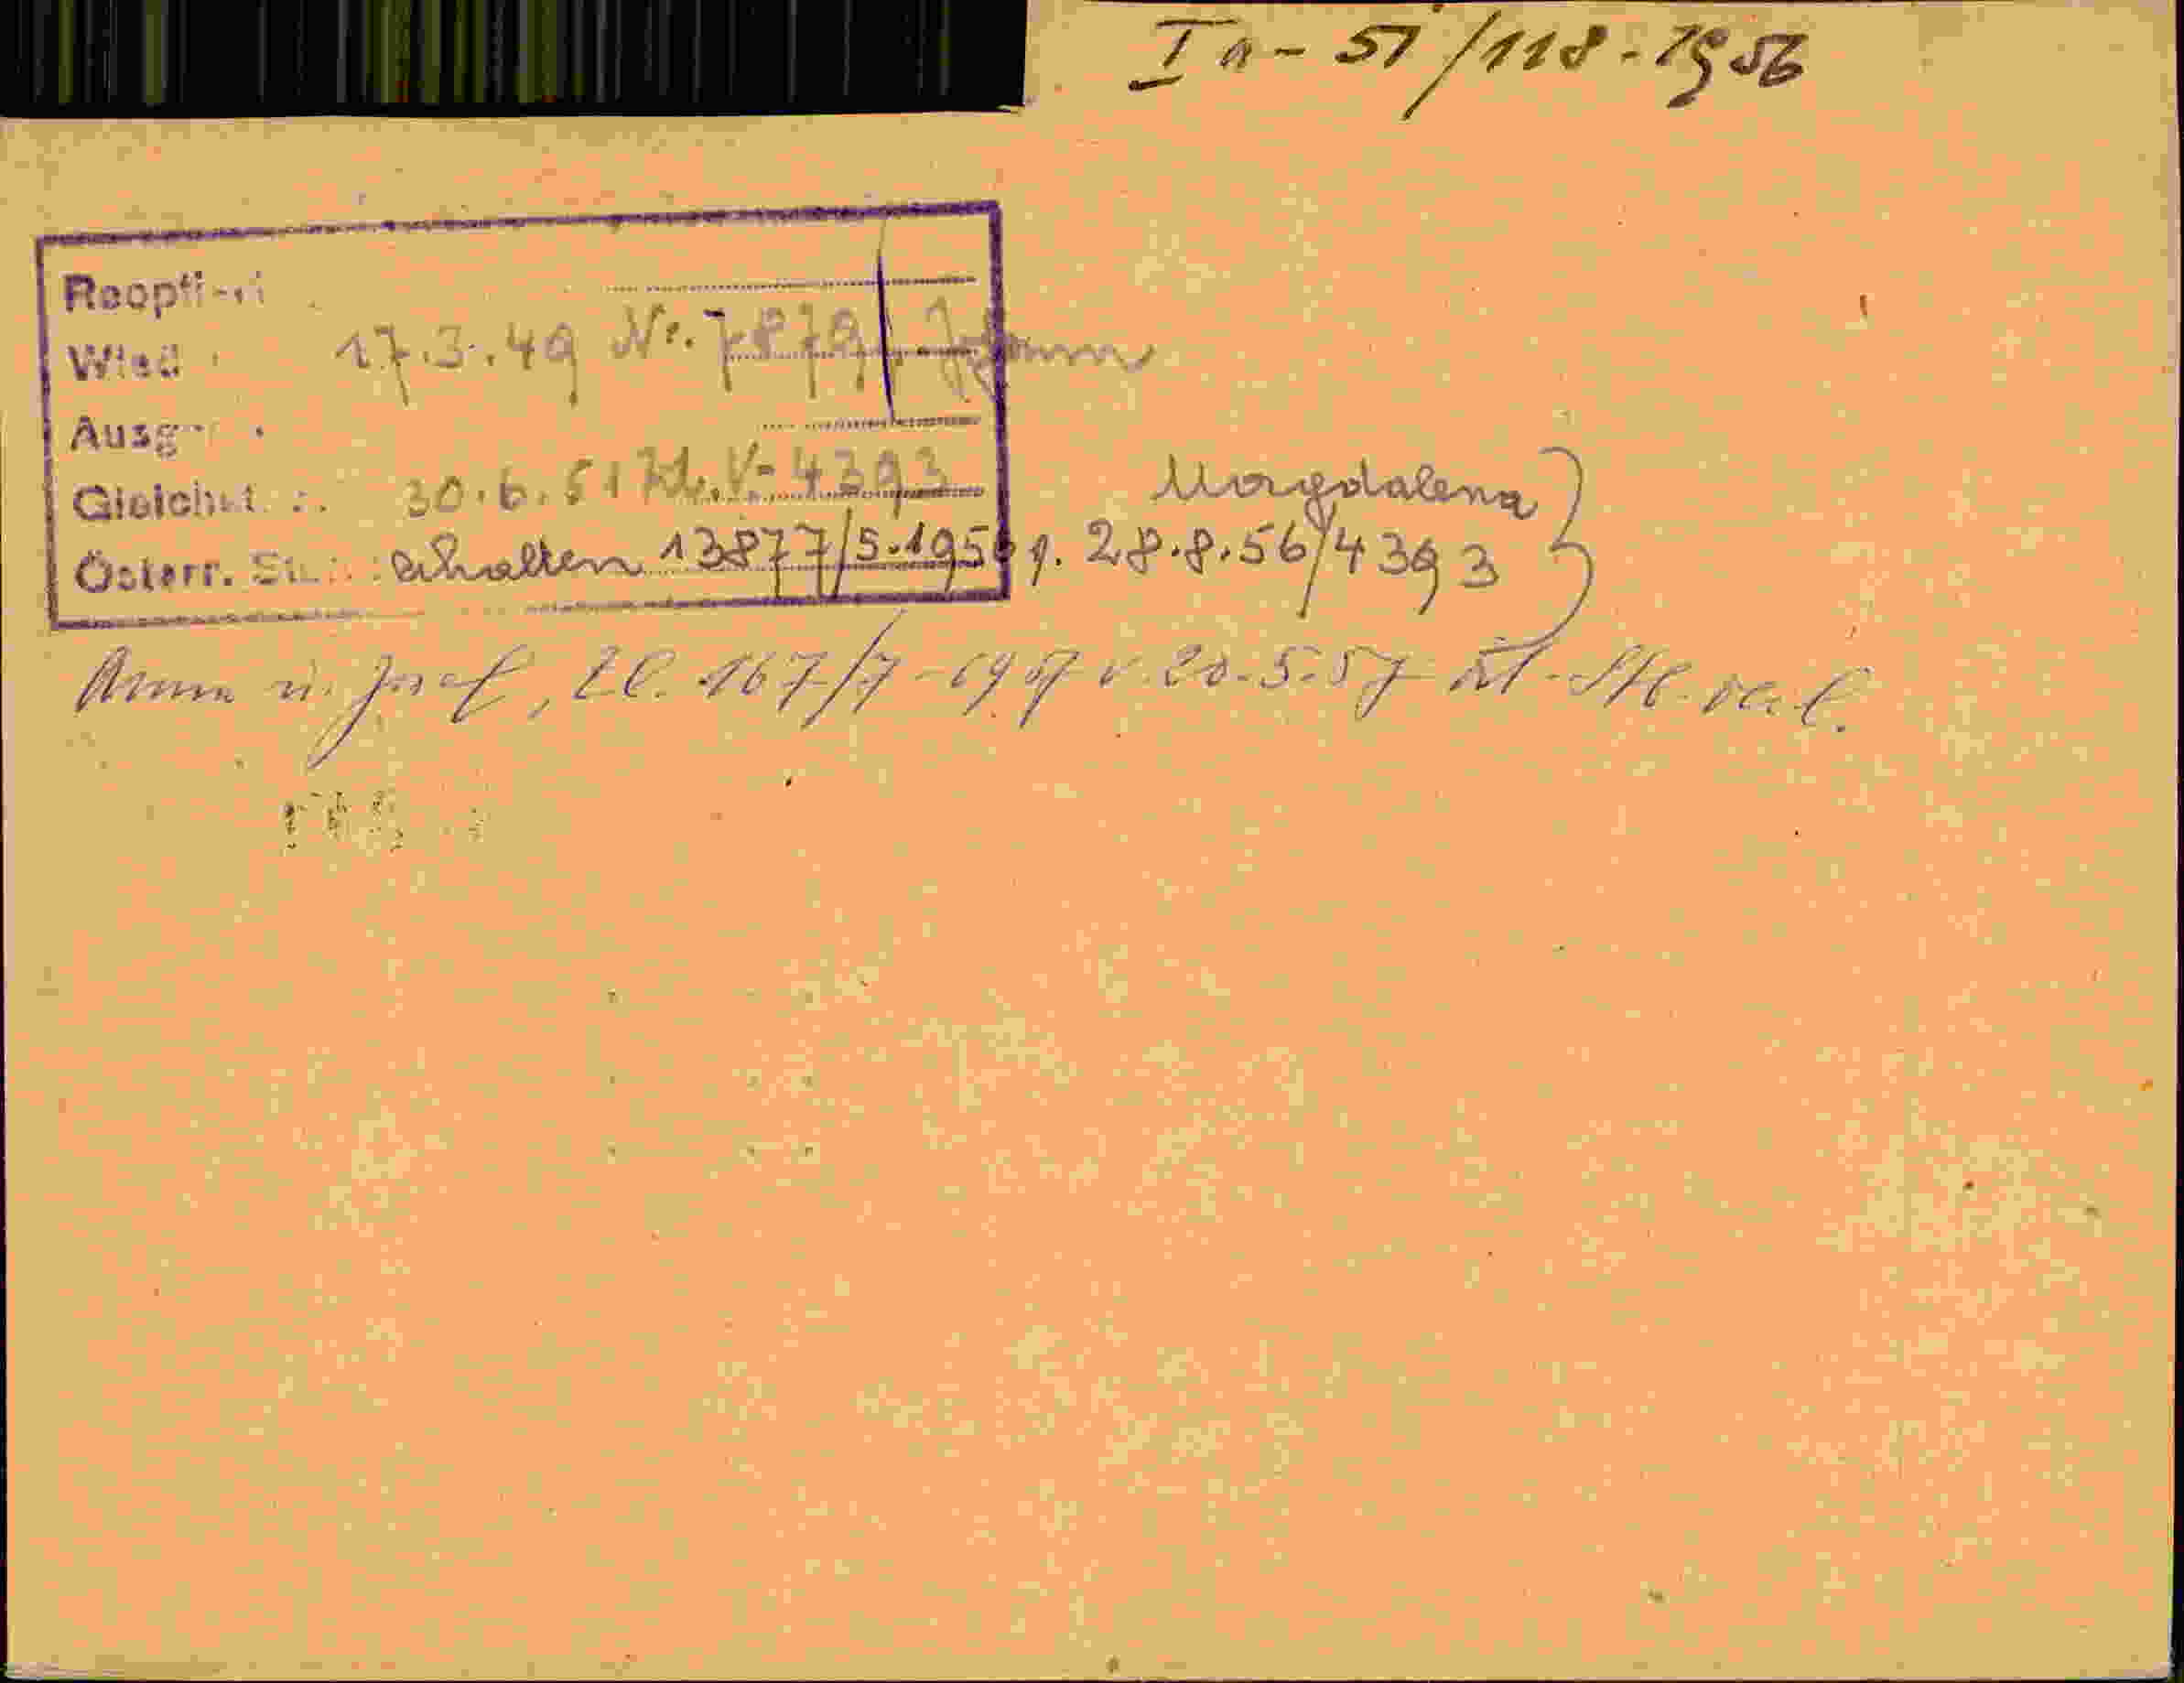 Ia - 51/118 - 1956
Reopti
Wied
17.3.49 Nr. 7879 Johann
Ausg
Gleichst. : 30.6.51 Zl. V-4393
Magdalena
Österr. St erhalten 13877/5.1956 v. 28.8.56/4393
Anna u. Josef, Zl. 167/7-1957 v. 20.5.57 öst. Stb. verl.